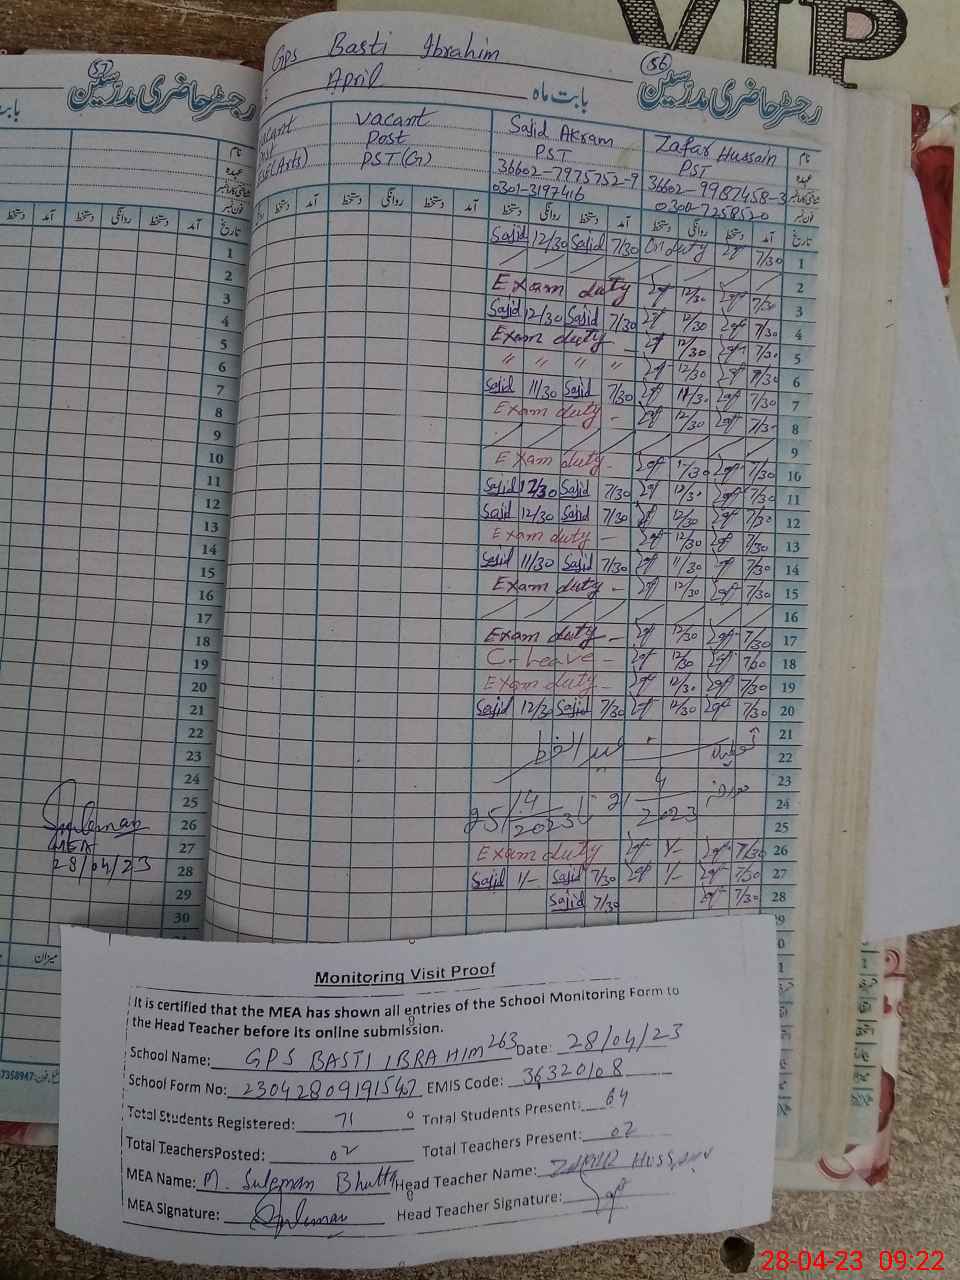 VIP
GPS Basti Ibrahim
56
April
بابت ماہ
رجسٹر حاضری مدرسین
57
رجسٹر حاضری مدرسین
vacant Post PST(G)
Sajid Akram PST 36602-7975752-9 0301-3197416
Zafar Hussain PST 36602-9987458-3 0300-7258520
نام
عہدہ
تاریخ آمد دستخط روانگی دستخط آمد دستخط روانگی دستخط
1 7/30 On duty 7/30 Sajid 12/30 Sajid
2
3 7/30 12/30 Exam duty
4 7/30 12/30 7/30 Sajid 12/30 Sajid
5 7/30 12/30 Exam duty
6 7/30 12/30 " " " "
7 7/30 11/30 7/30 Sajid 11/30 Sajid
8 7/30 12/30 Exam duty
9
10 7/30 12/30 Exam duty
11 7/30 12/30 7/30 Sajid 12/30 Sajid
12 7/30 12/30 7/30 Sajid 12/30 Sajid
13 7/30 12/30 Exam duty
14 7/30 11/30 7/30 Sajid 11/30 Sajid
15 7/30 12/30 Exam duty
16
17 7/30 12/30 Exam duty
18 7/30 12/30 C-Leave
19 7/30 12/30 Exam duty
20 7/30 12/30 7/30 Sajid 12/30 Sajid
21
22 تعطیلات عید الفطر
23
24 مورخہ 21/4/2023 تا 25/4/2023
25
26 7/30 1/- Exam duty
27 7/30 1/- 7/30 Sajid 1/- Sajid
28 7/30 7/30 Sajid
1
2
3
4
5
6
7
8
9
10
11
12
13
14
15
16
17
18
19
20
21
22
23
24
25
26
27
28
29
30
میزان
Suleman
MEA
28/04/23
Monitoring Visit Proof
It is certified that the MEA has shown all entries of the School Monitoring Form to
the Head Teacher before its online submission.
School Name: GPS BASTI IBRAHIM 263 Date: 28/04/23
School Form No: 23042809191547 EMIS Code: 36320108
Total Students Registered: 71 Total Students Present: 64
Total TeachersPosted: 02 Total Teachers Present: 02
MEA Name: M. Suleman Bhutta Head Teacher Name: Zafar Hussain
MEA Signature: Suleman Head Teacher Signature:
28-04-23 09:22